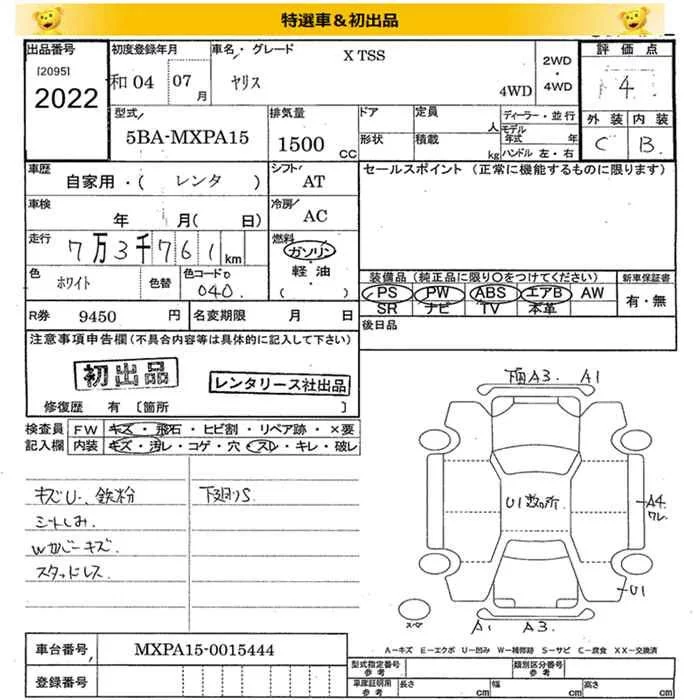 特選車&初出品
出品番号 初度登録年月 車名・グレード X TSS 2WD・4WD 評価点
[2095] 2022 和04 07月 ヤリス 4WD 4
外装 内装
C B
型式 5BA-MXPA15 排気量 1500 CC ドア 定員 人 ディーラー・並行
形状 積載 kg モデル年式 年
ハンドル 左・右
車歴 自家用・( レンタ ) シフト AT セールスポイント (正常に機能するものに限ります)
車検 年 月( 日) 冷房 AC
走行 7万3千761km 燃料 ガソリン・軽油 ( )
色 ホワイト 色替 色コードo 040 装備品 (純正品に限り○をつけてください) 新車保証書
PS PW ABS エアB AW 有・無
SR ナビ TV 本革
R券 9450 円 名変期限 月 日 後日品
注意事項申告欄 (不具合内容等は具体的に記入して下さい)
初出品 レンタリース社出品
修復歴 有 [箇所 ]
検査員記入欄 FW キズ・飛石・ヒビ割・リペア跡・×要
内装 キズ・汚レ・コゲ・穴・スレ・キレ・破レ
キズU-、鉄粉 下廻りS
シートしみ、
Wカバーキズ.
スタッドレス
下角A3. A1
U1数ヶ所
A4
ワレ
U1
スペア
A1 A3.
A-キズ E-エクボ U-凹み W-補修跡 S-サビ C-腐食 XX-交換済
車台番号 MXPA15-0015444
登録番号
型式指定番号 参考 類別区分番号 参考
車庫証明用 参考 長さ cm 幅 cm 高さ cm